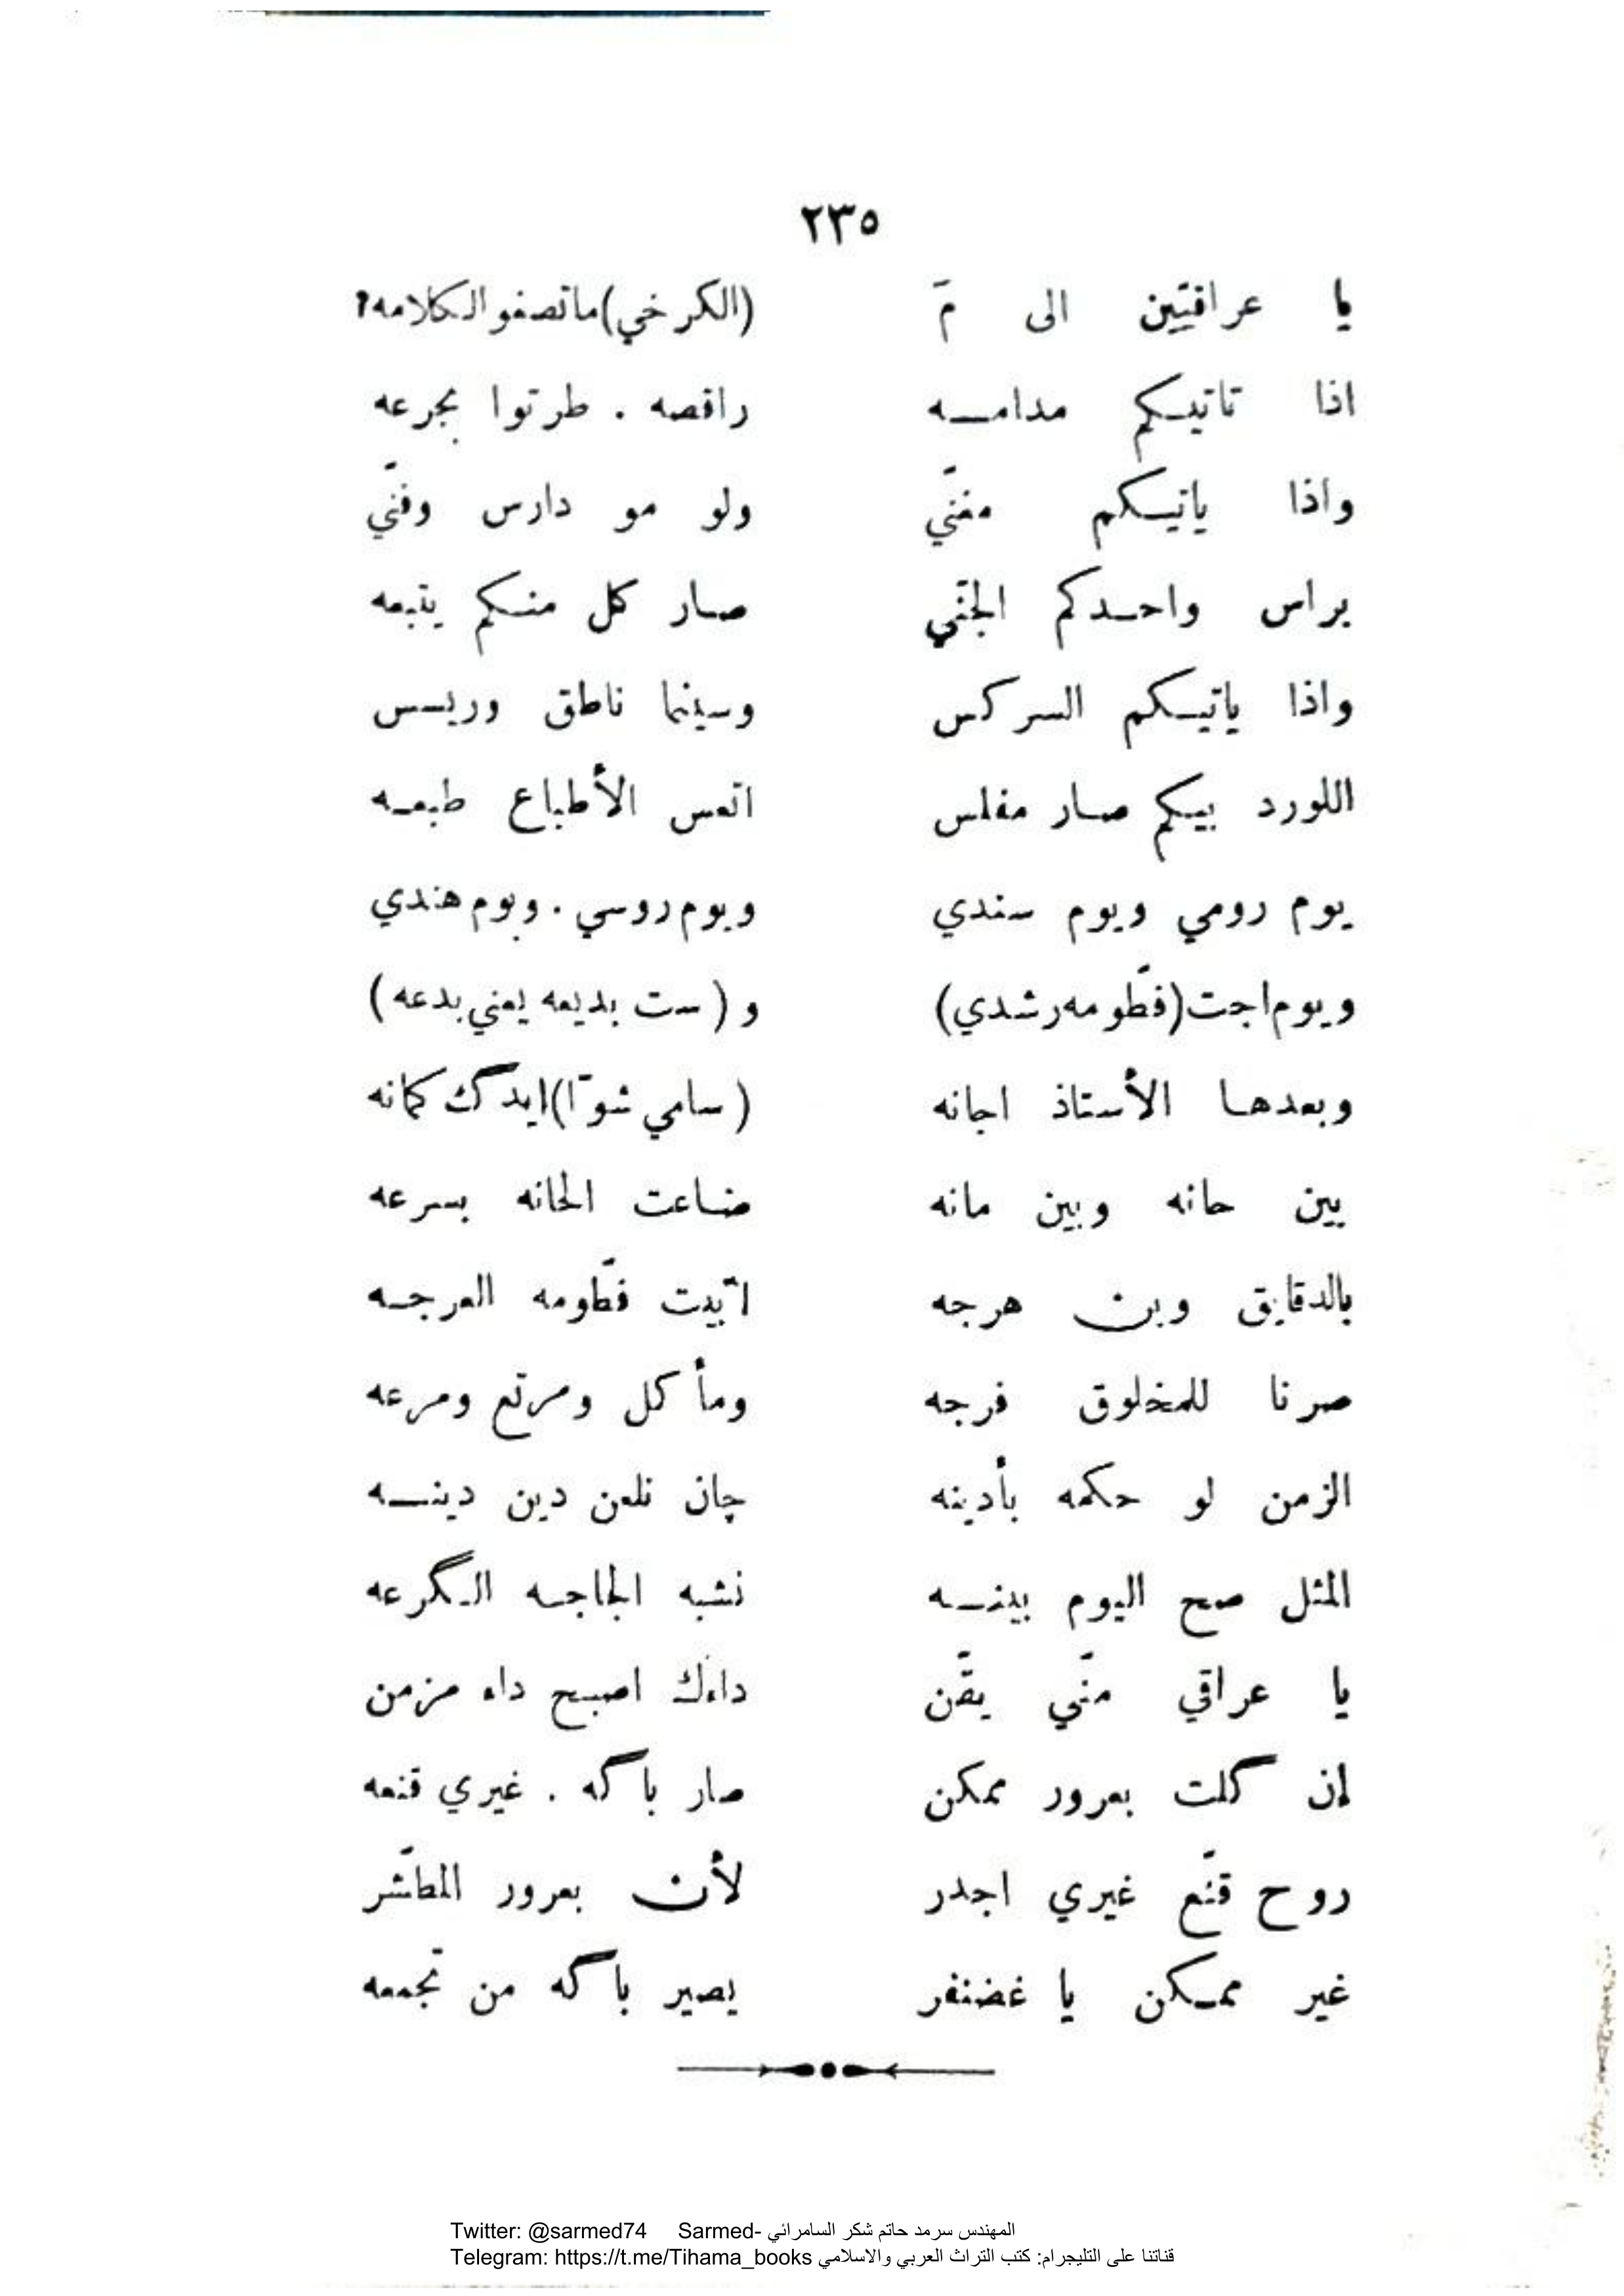 ٢٣٥
يا عراقيّين الى مَ (الكرخي) ماتصغو الكلامه؟
اذا تاتيكم مدامـه راقصه . طرتوا بجرعه
واذا ياتيكم مغنّي ولو مو دارس وفنّي
براس واحدكم الجنّي صار كل منكم يتبعه
واذا ياتيكم السركس وسينما ناطق وريسس
اللورد بيكم صار مفلس اتعس الأطباع طبعه
يوم رومي ويوم سندي ويوم روسي . ويوم هندي
ويوم اجت (فطّومه رشدي) و (ست بديعه يعني بدعه)
وبعدها الأستاذ اجانه (سامي شوّا) ايدگ كمانه
بين حانه وبين مانه ضاعت الحانه بسرعه
بالدقايق وبن هرجه ابّيدت فطّومه العرجه
صرنا للمخلوق فرجه ومأكل ومرتع ومرعه
الزمن لو حكمه بأدينه چان نلعن دين دينه
المثل صح اليوم بينه نشبه الجاجه الگرعه
يا عراقي منّي يقّن داءك اصبح داء مزمن
إن گلت بعرور ممكن صار باگه . غيري قنعه
روح قنّع غيري اجدر لأن بعرور المطشّر
غير ممكن يا غضنفر يصير باگه من تجّمعه
Twitter: @sarmed74 Sarmed- المهندس سرمد حاتم شكر السامرائي
Telegram: https://t.me/Tihama_books قناتنا على التليجرام: كتب التراث العربي والاسلامي